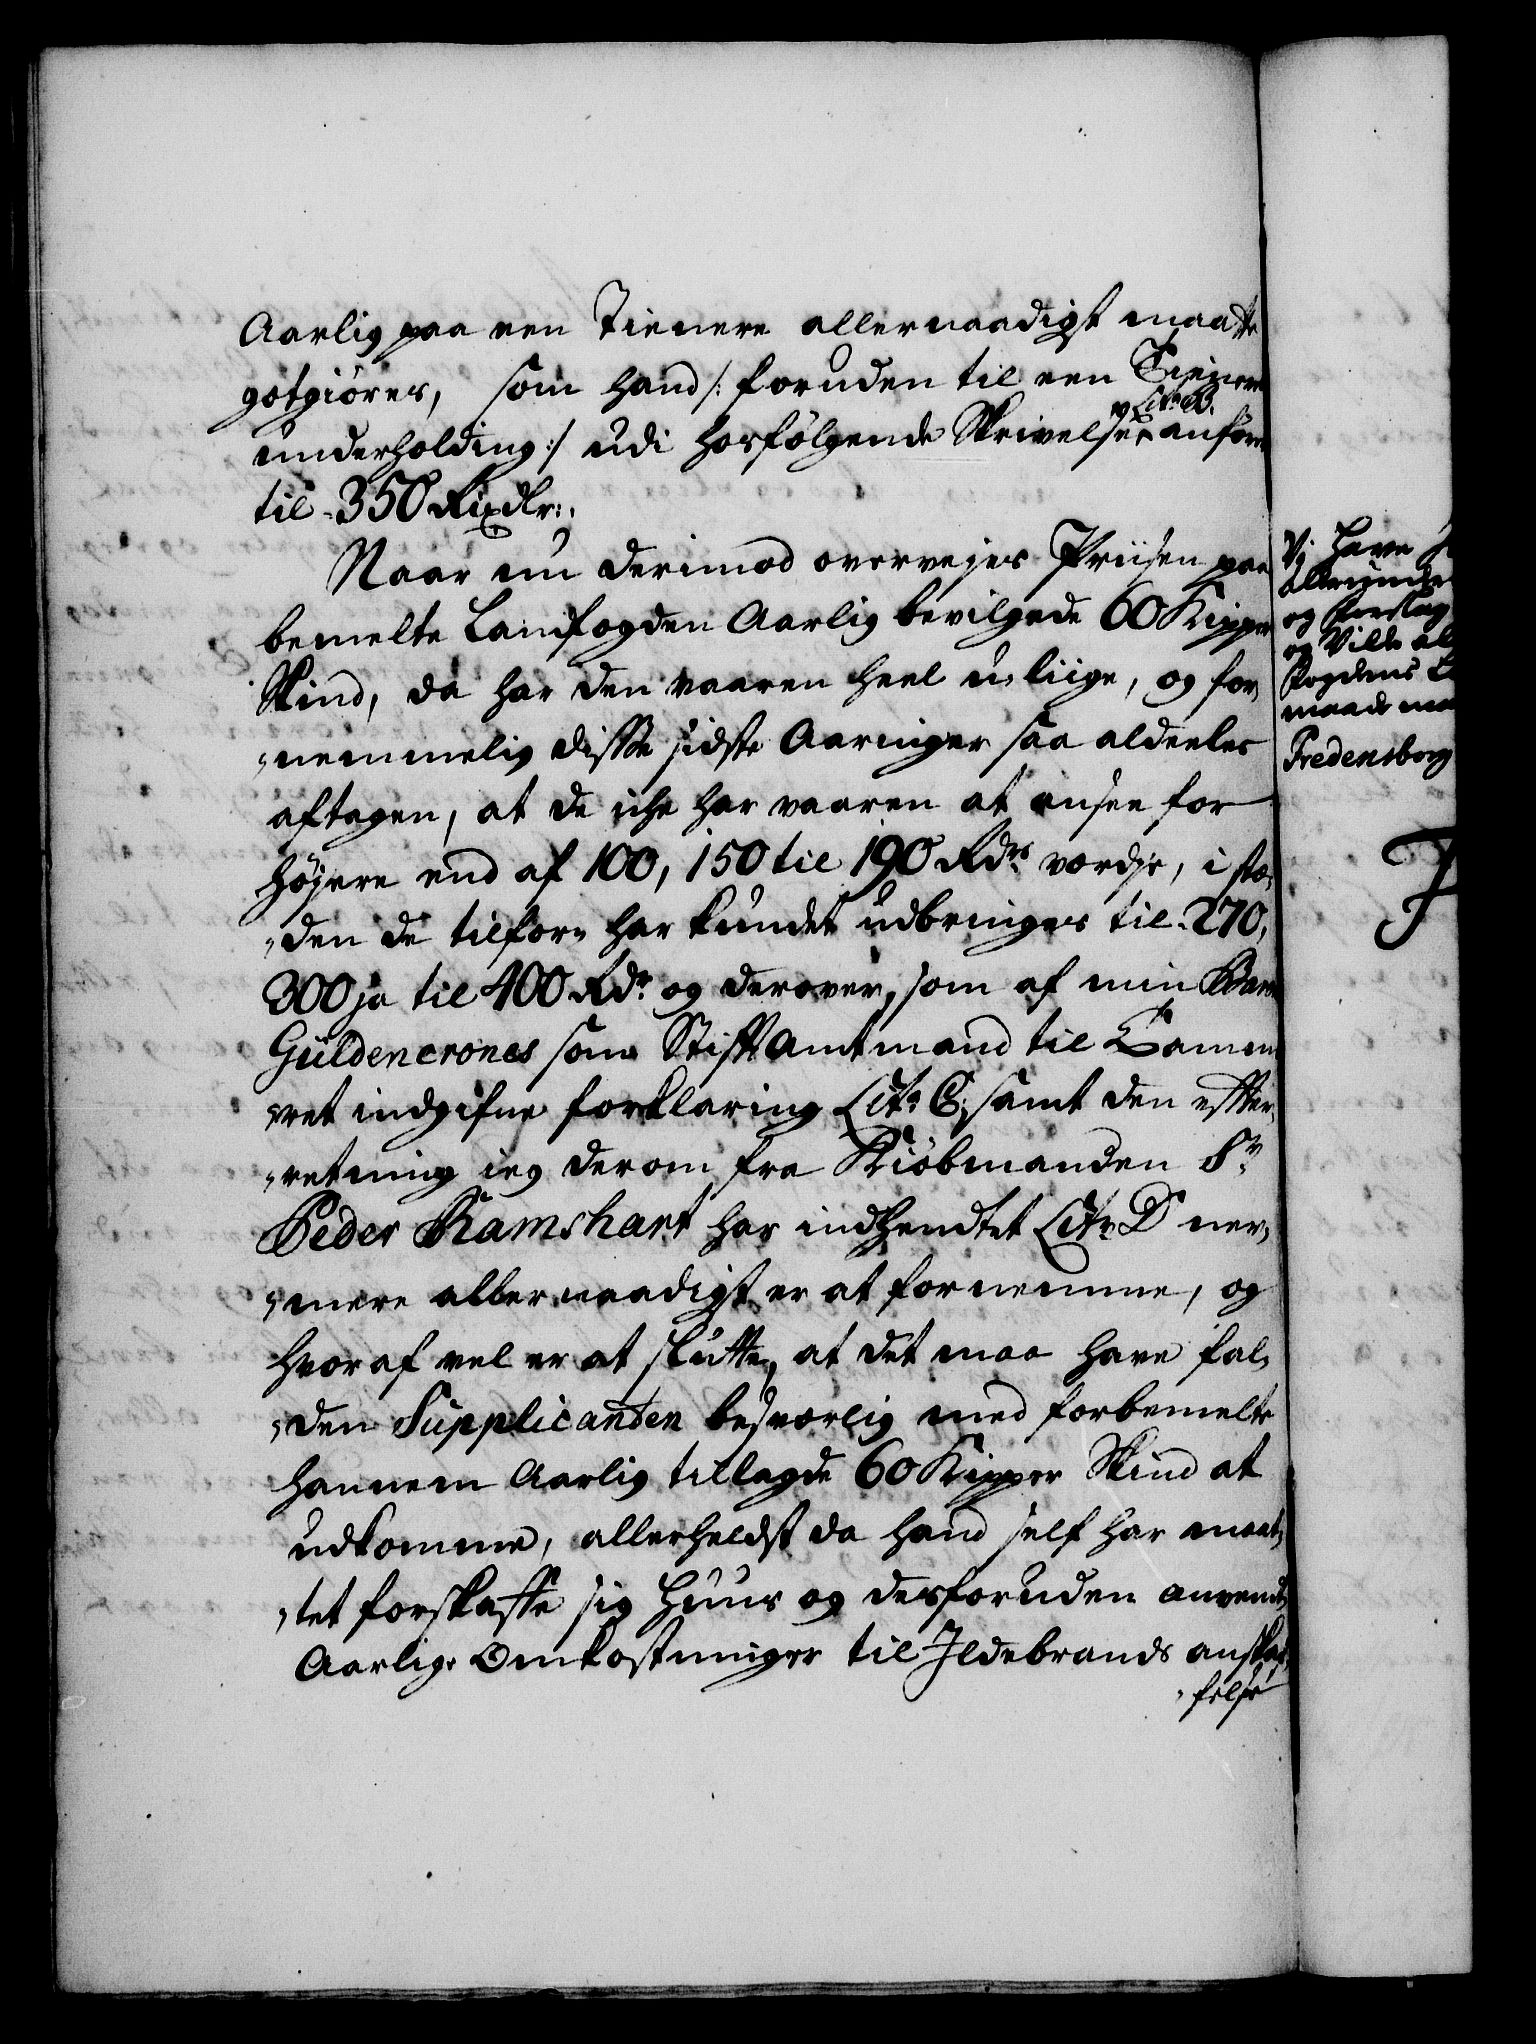 Aarlig paa een Tienere allernaadigst maatte
gotgiöres, som hand /: foruden til een Tieners
Litr: B.
underholding :/ udi hosfölgende Skrivelse anförer
til 350 Rixdlr:.
Naar nu derimod overvejes Priisen paa
bemelte Landfogden Aarlig bevilgede 60 Kipper
Skind, da har den vaaren heel u-liige, og for-
-nemmelig disse sidste Aaringer saa aldeeles
aftagen, at de iche har vaaren at ansee for
höjere end af 100, 150 til 190 Rdrs værdje, i stæ-
-den de tilforn har kundet udbringes til 270,
300 ja til 400 Rdr og derover, som af min Baron
Güldencrones som Stiftamtmand til Camme-
-ret indgifne forklaring Litr: C, samt den effter-
-retning ieg derom fra Kiöbmanden Sr
Peder Ramshart har indhendtet Litr: D ner-
-mere allernaadigst er at fornemme, og
hvoraf vel er at slutte, at det maa have fal-
-den Supplicanten besværlig med forbemelte
hannem Aarlig tillagde 60 Kipper Skind at
udkomme, allerheldst da hand self har maat-
-tet forskaffe sig Huus og desforuden anvendt
Aarlige Omkostninger til Jldebrands anskaf-
-felse
Vj have
allerunde
og forslag
og Ville al
fogdens
maade maa
Fredensborg